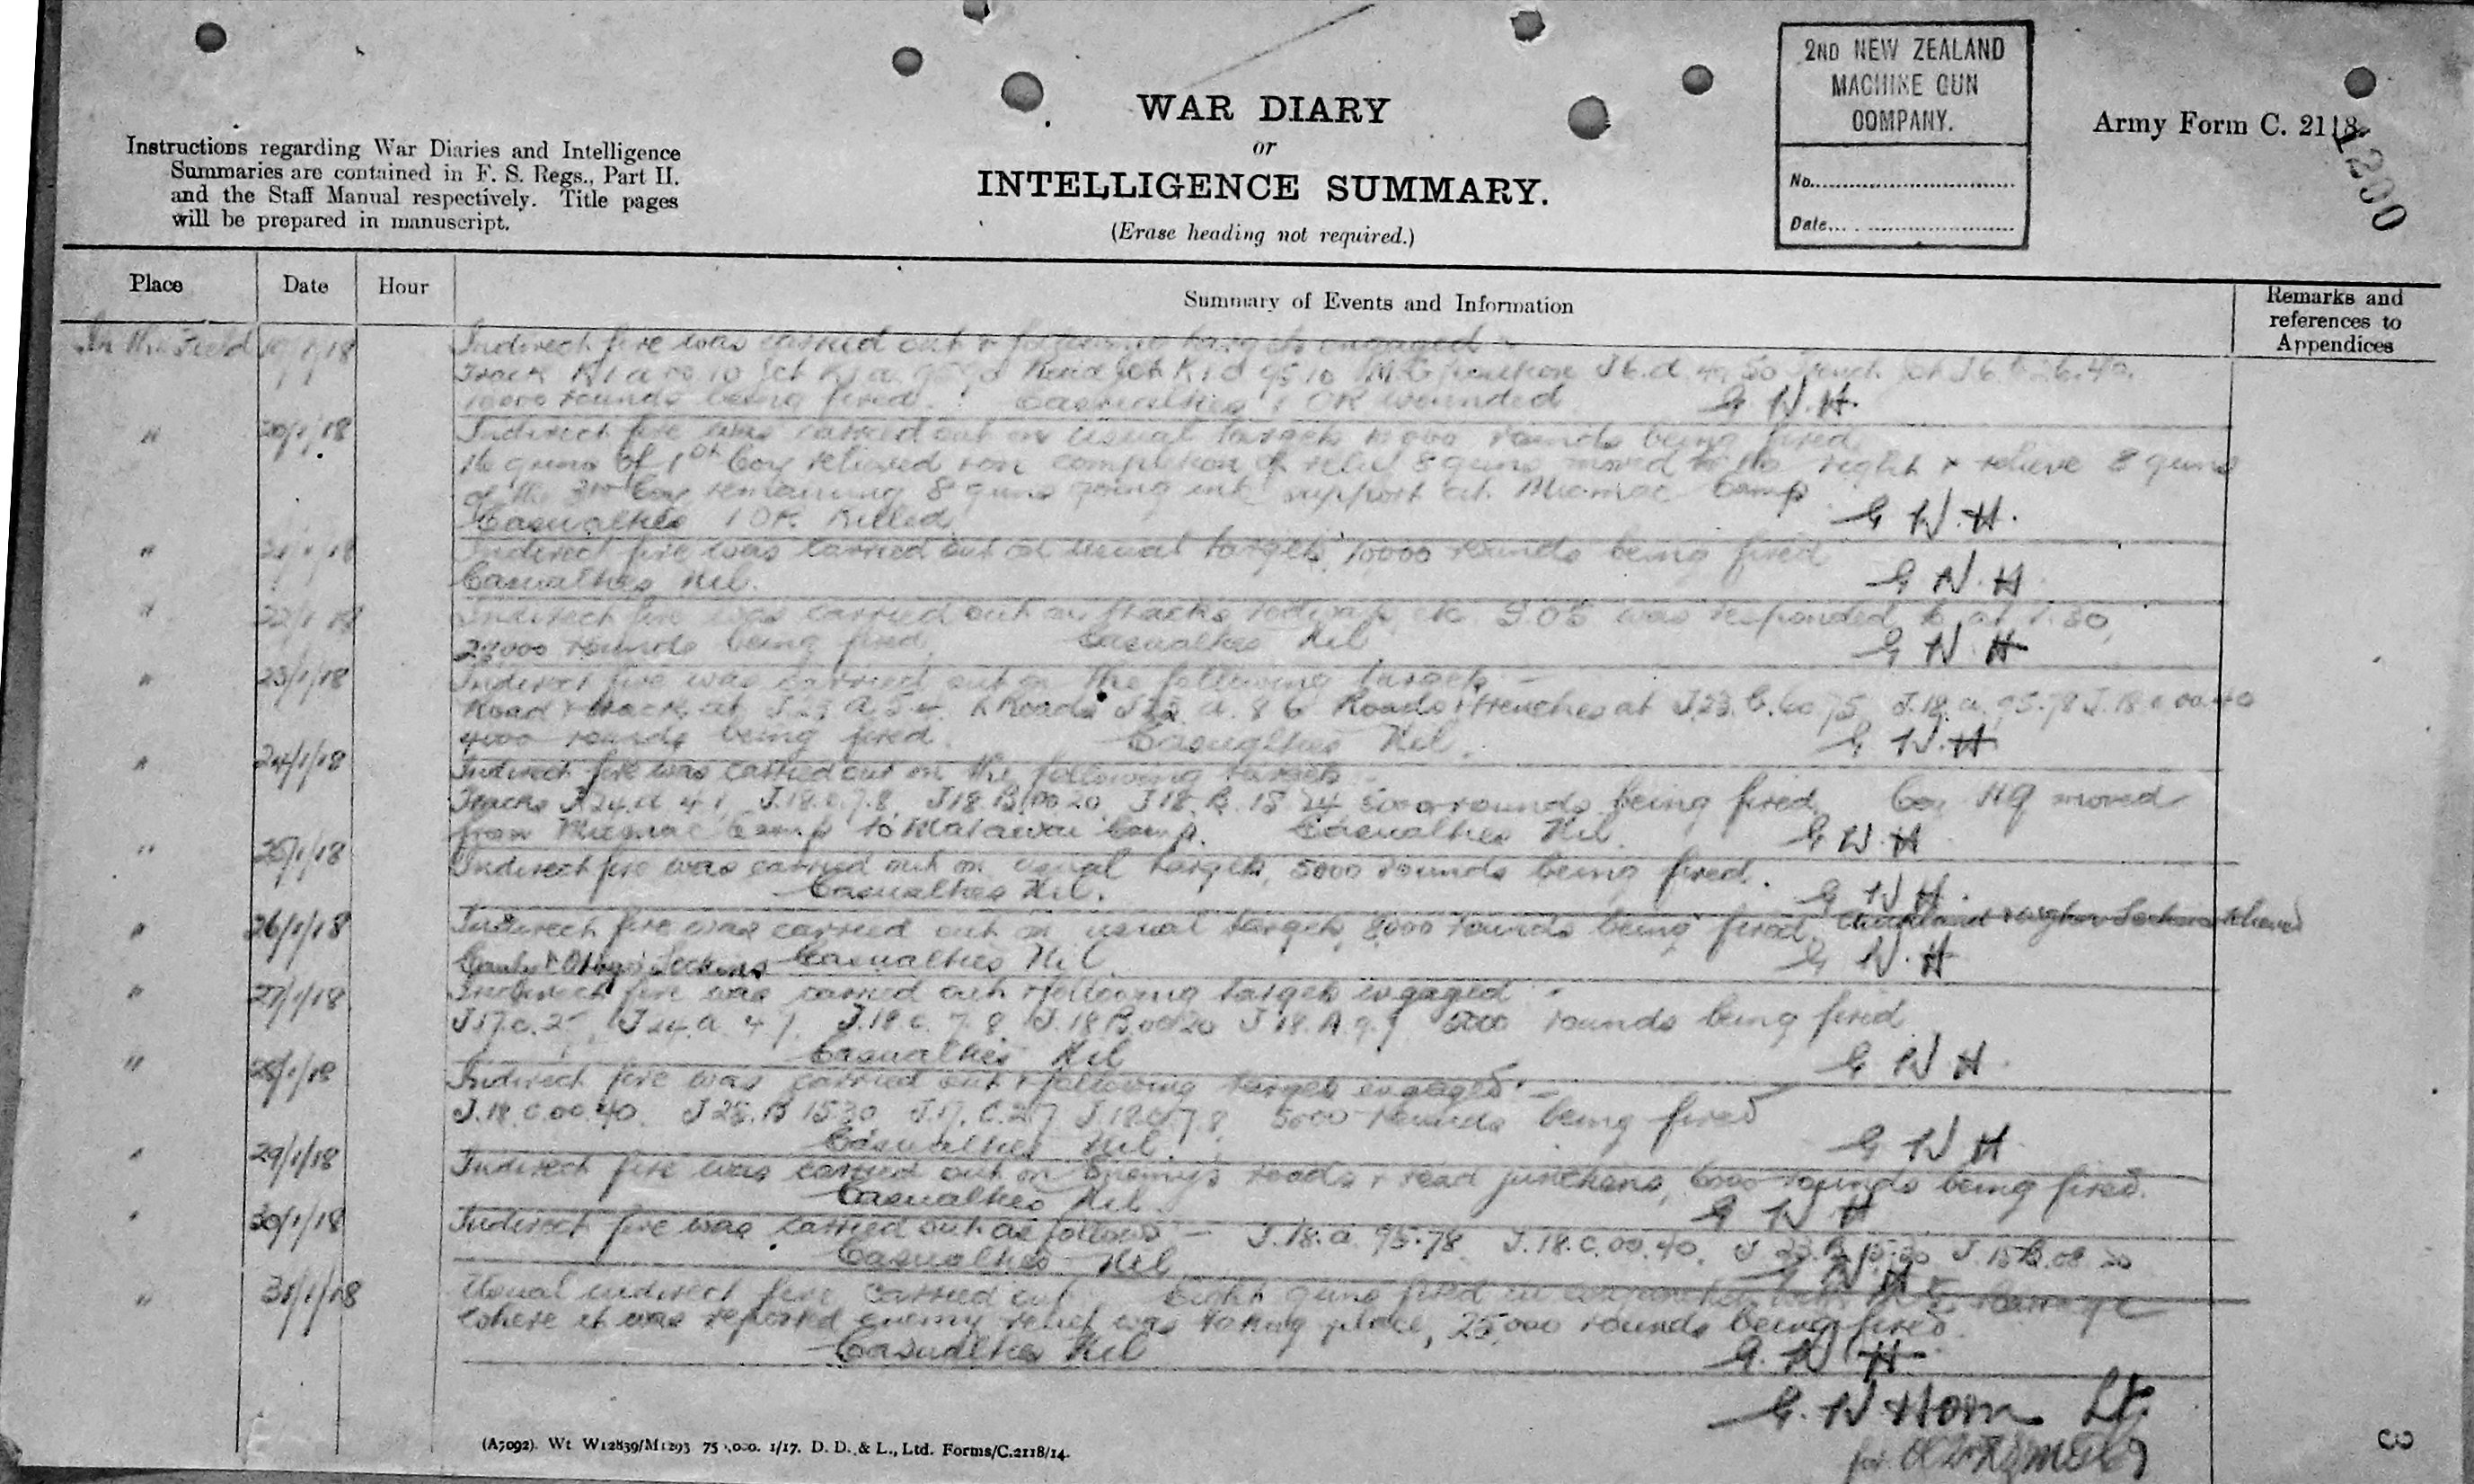 2ND NEW ZEALAND
MACHINE GUN
COMPANY.
No.
Date
Army Form C. 2118
1200
WAR DIARY
or
INTELLIGENCE SUMMARY.
(Erase heading not required.)
Instructions regarding War Diaries and Intelligence
Summaries are contained in F. S. Regs., Part II.
and the Staff Manual respectively. Title pages
will be prepared in manuscript.
Place Date Hour Summary of Events and Information Remarks and
references to
Appendices
In the Field 19/1/18 Indirect fire was carried out & following targets engaged
Track K1a Road Jct K1d 95 10 J6.d. 50 J6.b.26.40.
10000 rounds being fired. Casualties 1 OR wounded G. N. H.
" 20/1/18 Indirect fire was carried out on usual targets 10000 rounds being fired
16 guns of 1st Coy relieved & on completion of relief 8 guns moved to the right & relieve 8 guns
of the 3rd Coy remaining 8 guns going into support at Micmac Camp
Casualties 1 OR Killed G N. H.
" 21/1/18 Indirect fire was carried out on usual targets, 10000 rounds being fired
Casualties Nil. G N. H
" 22/1/18 Indirect fire was carried out on tracks roadways etc. SOS was responded to at 7.30,
rounds being fired. Casualties Nil G N H
" 23/1/18 Indirect fire was carried out on the following targets :-
Road & track at J.23 a.5 Roads a. 8 6 Roads & trenches at J.23.b.60 75 J.18.a.95.78 J.18.c.00.40
4000 rounds being fired. Casualties Nil. G N. H
" 24/1/18 Indirect fire was carried out on the following targets
Tracks J.24.d 4.1, J.18.c.7.8 J18.B.00 20 J18.B. 15 5000 rounds being fired. Coy HQ moved
from Micmac Camp to Matawai Camp. Casualties Nil. G N. H
" 25/1/18 Indirect fire was carried out on usual targets, 5000 rounds being fired.
Casualties Nil. G N H.
" 26/1/18 Indirect fire was carried out on usual targets, 8000 rounds being fired, Auckland & Wgtn Sections relieved
Canty & Otago Sections Casualties Nil. G N. H
" 27/1/18 Indirect fire was carried out & following targets engaged :-
J17.c.2 J24.a. 4 7. J.18.c. 7. 8 J.18 B.00 20 J 18.A.9. 5000 rounds being fired
Casualties Nil G N H.
" 28/1/18 Indirect fire was carried out & following targets engaged :-
J.18.C.00.40. J 23.B 15 30 J.17.C.2.7 J.18.c.7.8, 5000 rounds being fired
Casualties Nil. G N H
" 29/1/18 Indirect fire was carried out on Enemy's roads & road junctions, 6000 rounds being fired.
Casualties Nil. G N H
" 30/1/18 Indirect fire was carried out as follows :- J.18.a. 95.78 J.18.C.00.40. J 23.B.15.30 J.18.B.00 20
Casualties Nil G N H
" 31/1/18 Usual indirect fire carried out. Eight guns fired in conjunction with barrage
where it was reported enemy relief was taking place, 25,000 rounds being fired.
Casualties Nil G. N H
G. N Horn Lt.
for
(A7092). Wt W12839/M1293 75,000. 1/17. D. D. & L., Ltd. Forms/C.2118/14.
3